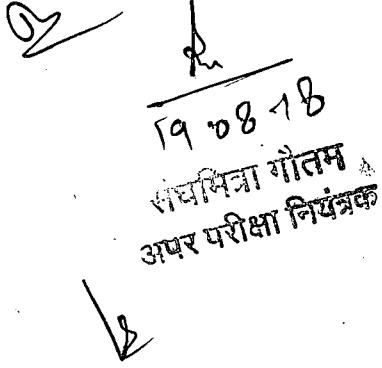 19 08 18
संघमित्रा गौतम
अपर परीक्षा नियंत्रक